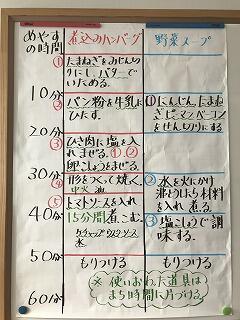 めやす
の時間
煮込みハンバーグ
野菜スープ
①
たまねぎをみじん
切りにし、バターで
いためる。
10分
②
パン粉を牛乳に
ひたす。
①にんじん、たまね
ぎピーマンベーコン
をせん切りにする
20分
③
ひき肉に塩を入
れまぜる。①、②、
卵こしょうをまぜる。
30分
④
形をつくって焼く。
中火 油
⑤
トマトソースを入れ
15分間煮こむ
ケチャップウスターソース
水
40分
②水を火にかけ
沸とうしたら材料
を入れ煮る。
③塩こしょうで調
味する。
50分
もりつける
もりつける
60分
※使いおわった道具は
まち時間に片づける。